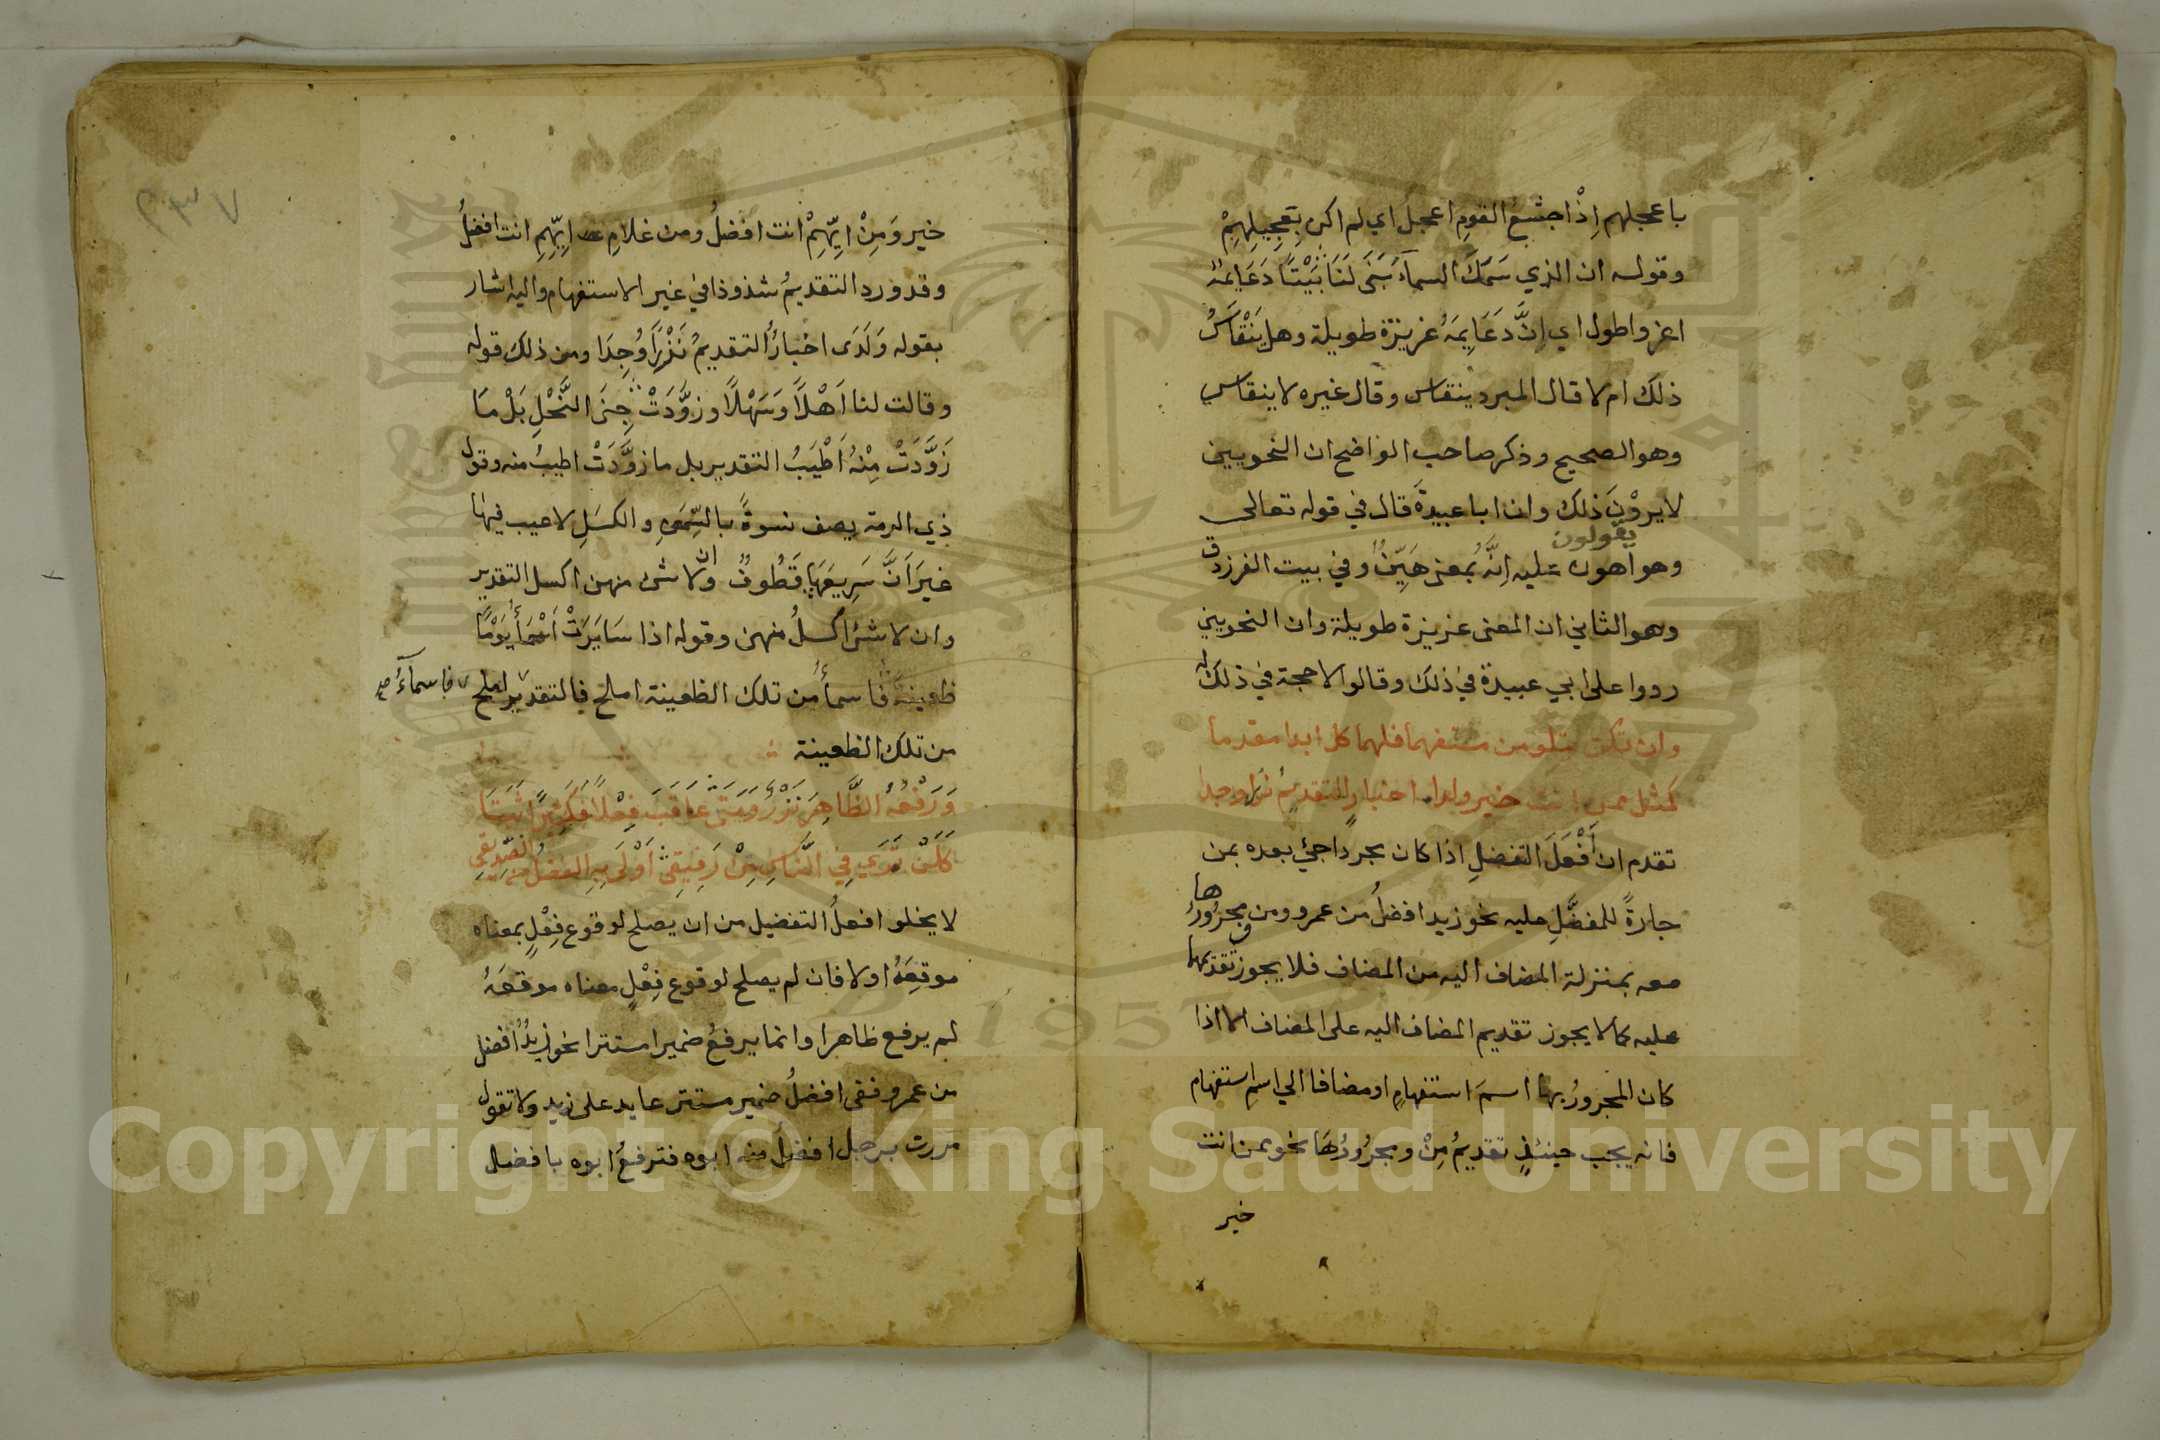 باعجلهم اِذْ اجشعُ القومِ اعجلُ اي لم اكن بِعَجِيلِهِمْ
وقوله ان الذي سَمَكَ السمآءَ بَنَى لَنَا بَيْتًا دَعَايمُهُ
اعز واطول اي اِنَّ دَعَايِمَهُ عزيزة طويلة وهل يَنْقَاسُ
ذلك ام لا قال المبرد ينقاس وقال غيره لا ينقاس
وهو الصحيح وذكر صاحب الواضح ان النحويين
لا يروْنَ ذلك وان ابا عبيدةَ قال في قوله تعالى
يقولون
وهو اهون عليه اِنَّهُ بمعنى هَيِّنٌ وفي بيت الفرزدق
وهو الثاني ان المعنى عزيزة طويلة وان النحويين
ردوا على ابي عبيدة في ذلك وقالوا لا حجة في ذلك له
وان تكن بتلو من مستفهما فلهما كن ابدا مقدما
كمثل ممن انت خير ولدى اخبارٍ التقديمُ نزرا وجدا
تقدم ان أَفْعَلَ التفضلِ اذا كان مجردا جئ بعده بمن
جارةً للمفضَّلِ عليه نحو زيد افضلُ من عمرو ومن ومجرُورُها
معه بمنزلة المضاف اليه من المضاف فلا يجوز تقدّيمهما
عليه كما لا يجوز تقديم المضاف اليه على المضاف الا اذا
كان المجرورُ بها اسمَ استفهامٍ او مضافا الي اسمِ استفهام
فانه يجب حينئذٍ تقديمُ مِنْ ومجرُورُهَا نحو بمن انت
خير
٢٣٧
خير وَمِنْ ايِّهِمْ انت افضلُ ومن غلامِ ايِّهِمِ انت افضلُ
وقد ورد التقديمُ شذوذا في غير الاستفهام واليه اشار
بقوله وَلَدَى اخبارٍ التقديمُ نَزْرًا وُجِدَا ومن ذلك قوله
وقالت لنا اَهْلاً وَسَهْلاً وزوَّدَتْ جِنَى النَّحْلِ بَلْ مَا
زَوَّدَتْ مِنْهُ اَطْيَبُ التقدير بل ما زوَّدَتْ اطيبُ منه وقول
ذي الرمة يصف نسوةً بالسِّمَنِ والكسَلِ لا عيب فيها
غيرَ اَنَّ سَرِيعَهَا قَطُوفٌ وان لا شئ منهن اكسل التقدير
وان لا شئ اكسلُ منهن وقوله اذا سَايَرَتْ اَسْمَأُ يَوْمًا
ظعينة فاسمأُ من تلك الظعينة املح فالتقدير املح
فاسمآءُ صح
من تلك الظعينة
وَرَفْعُهُ الظَّاهِرَ نَزْرٌ وَمَتَى عَاقَبَ فِعْلاً فَكَثِيرًا ثَبَتَا
كَلَنْ تَرَى فِي النَّاسِ مِنْ رَفِيقٍ اَوْلَى بِهِ الفضلُ من الصِّدِّيقِ
لا يخلوا افعلُ التفضيل من ان يصلح لوقوع فِعْلٍ بمعناه
موقِعَهُ او لا فان لم يصلح لوقوع فِعْلٍ معناه موقعَهُ
لم يرفع ظاهرا وانما يرفعُ ضميرا مستترا نحو زيدٌ افضل
من عمرو ففي افضلُ ضمير مستتر عايد على زيد ولا تقول
مررت برجل افضلَ منه ابوه فترفعُ ابوه بافضل